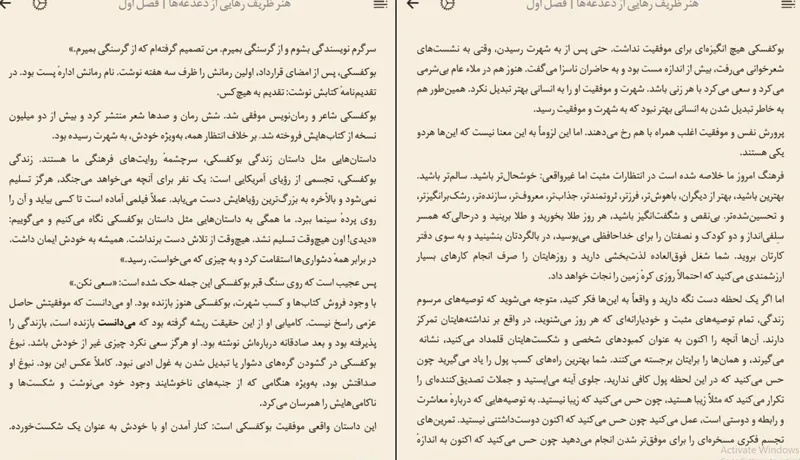 هنر ظریف رهایی از دغدغه‌ها | فصل اول
سرگرم نویسندگی بشوم و از گرسنگی بمیرم. من تصمیم گرفته‌ام که از گرسنگی بمیرم.»
بوکفسکی، پس از امضای قرارداد، اولین رمانش را ظرف سه هفته نوشت. نام رمانش ادارهٔ پست بود. در
تقدیم‌نامهٔ کتابش نوشت: تقدیم به هیچ‌کس.
بوکفسکی شاعر و رمان‌نویس موفقی شد. شش رمان و صدها شعر منتشر کرد و بیش از دو میلیون
نسخه از کتاب‌هایش فروخته شد. بر خلاف انتظار همه، به‌ویژه خودش، به شهرت رسیده بود.
داستان‌هایی مثل داستان زندگی بوکفسکی، سرچشمهٔ روایت‌های فرهنگی ما هستند. زندگی
بوکفسکی، تجسمی از رؤیای آمریکایی است: یک نفر برای آنچه می‌خواهد می‌جنگد، هرگز تسلیم
نمی‌شود و بالأخره به بزرگ‌ترین رؤیاهایش دست می‌یابد. عملاً فیلمی آماده است تا کسی بیاید و آن را
روی پردهٔ سینما ببرد. ما همگی به داستان‌هایی مثل داستان بوکفسکی نگاه می‌کنیم و می‌گوییم:
«دیدی! اون هیچ‌وقت تسلیم نشد. هیچ‌وقت از تلاش دست برنداشت. همیشه به خودش ایمان داشت.
در برابر همهٔ دشواری‌ها استقامت کرد و به چیزی که می‌خواست، رسید.»
پس عجیب است که روی سنگ قبر بوکفسکی این جمله حک شده است: «سعی نکن.»
با وجود فروش کتاب‌ها و کسب شهرت، بوکفسکی هنوز بازنده بود. او می‌دانست که موفقیتش حاصل
عزمی راسخ نیست. کامیابی او از این حقیقت ریشه گرفته بود که می‌دانست بازنده است، بازندگی را
پذیرفته بود و بعد صادقانه درباره‌اش نوشته بود. او هرگز سعی نکرد چیزی غیر از خودش باشد. نبوغ
بوکفسکی در گشودن گره‌های دشوار یا تبدیل شدن به غول ادبی نبود. کاملاً عکس این بود. نبوغ او
صداقتش بود، به‌ویژه هنگامی که از جنبه‌های ناخوشایند وجود خود می‌نوشت و شکست‌ها و
ناکامی‌هایش را همرسان می‌کرد.
این داستان واقعی موفقیت بوکفسکی است: کنار آمدن او با خودش به عنوان یک شکست‌خورده.
هنر ظریف رهایی از دغدغه‌ها | فصل اول
بوکفسکی هیچ انگیزه‌ای برای موفقیت نداشت. حتی پس از به شهرت رسیدن، وقتی به نشست‌های
شعرخوانی می‌رفت، بیش از اندازه مست بود و به حاضران ناسزا می‌گفت. هنوز هم در ملاء عام بی‌شرمی
می‌کرد و سعی می‌کرد با هر زنی باشد. شهرت و موفقیت او را به انسانی بهتر تبدیل نکرد. همین‌طور هم
به خاطر تبدیل شدن به انسانی بهتر نبود که به شهرت و موفقیت رسید.
پرورش نفس و موفقیت اغلب همراه با هم رخ می‌دهند. اما این لزوماً به این معنا نیست که این‌ها هردو
یکی هستند.
فرهنگ امروز ما خلاصه شده است در انتظارات مثبت اما غیرواقعی: خوشحال‌تر باشید. سالم‌تر باشید.
بهترین باشید، بهتر از دیگران، باهوش‌تر، فرزتر، ثروتمندتر، جذاب‌تر، معروف‌تر، سازنده‌تر، رشک‌برانگیزتر،
و تحسین‌شده‌تر. بی‌نقص و شگفت‌انگیز باشید، هر روز طلا بخورید و طلا برینید و درحالی‌که همسر
سِلفی‌انداز و دو کودک و نصفتان را برای خداحافظی می‌بوسید، در بالگردتان بنشینید و به سوی دفتر
کارتان بروید. شما شغل فوق‌العاده لذت‌بخشی دارید و روزهایتان را صرف انجام کارهای بسیار
ارزشمندی می‌کنید که احتمالاً روزی کرهٔ زمین را نجات خواهد داد.
اما اگر یک لحظه دست نگه دارید و واقعاً به این‌ها فکر کنید، متوجه می‌شوید که توصیه‌های مرسوم
زندگی، تمام توصیه‌های مثبت و خودیارانه‌ای که هر روز می‌شنوید، در واقع بر نداشته‌هایتان تمرکز
دارند. آن‌ها آنچه را اکنون به عنوان کمبودهای شخصی و شکست‌هایتان قلمداد می‌کنید، نشانه
می‌گیرند، و همان‌ها را برایتان برجسته می‌کنند. شما بهترین راه‌های کسب پول را یاد می‌گیرید چون
حس می‌کنید که در این لحظه پول کافی ندارید. جلوی آینه می‌ایستید و جملات تصدیق‌کننده‌ای را
تکرار می‌کنید که مثلاً زیبا هستید، چون حس می‌کنید که زیبا نیستید. به توصیه‌هایی که دربارهٔ معاشرت
و رابطه و دوستی است، عمل می‌کنید چون حس می‌کنید که اکنون دوست‌داشتنی نیستید. تمرین‌های
تجسم فکری مسخره‌ای را برای موفق‌تر شدن انجام می‌دهید چون حس می‌کنید که اکنون به اندازهٔ
Activate Windows